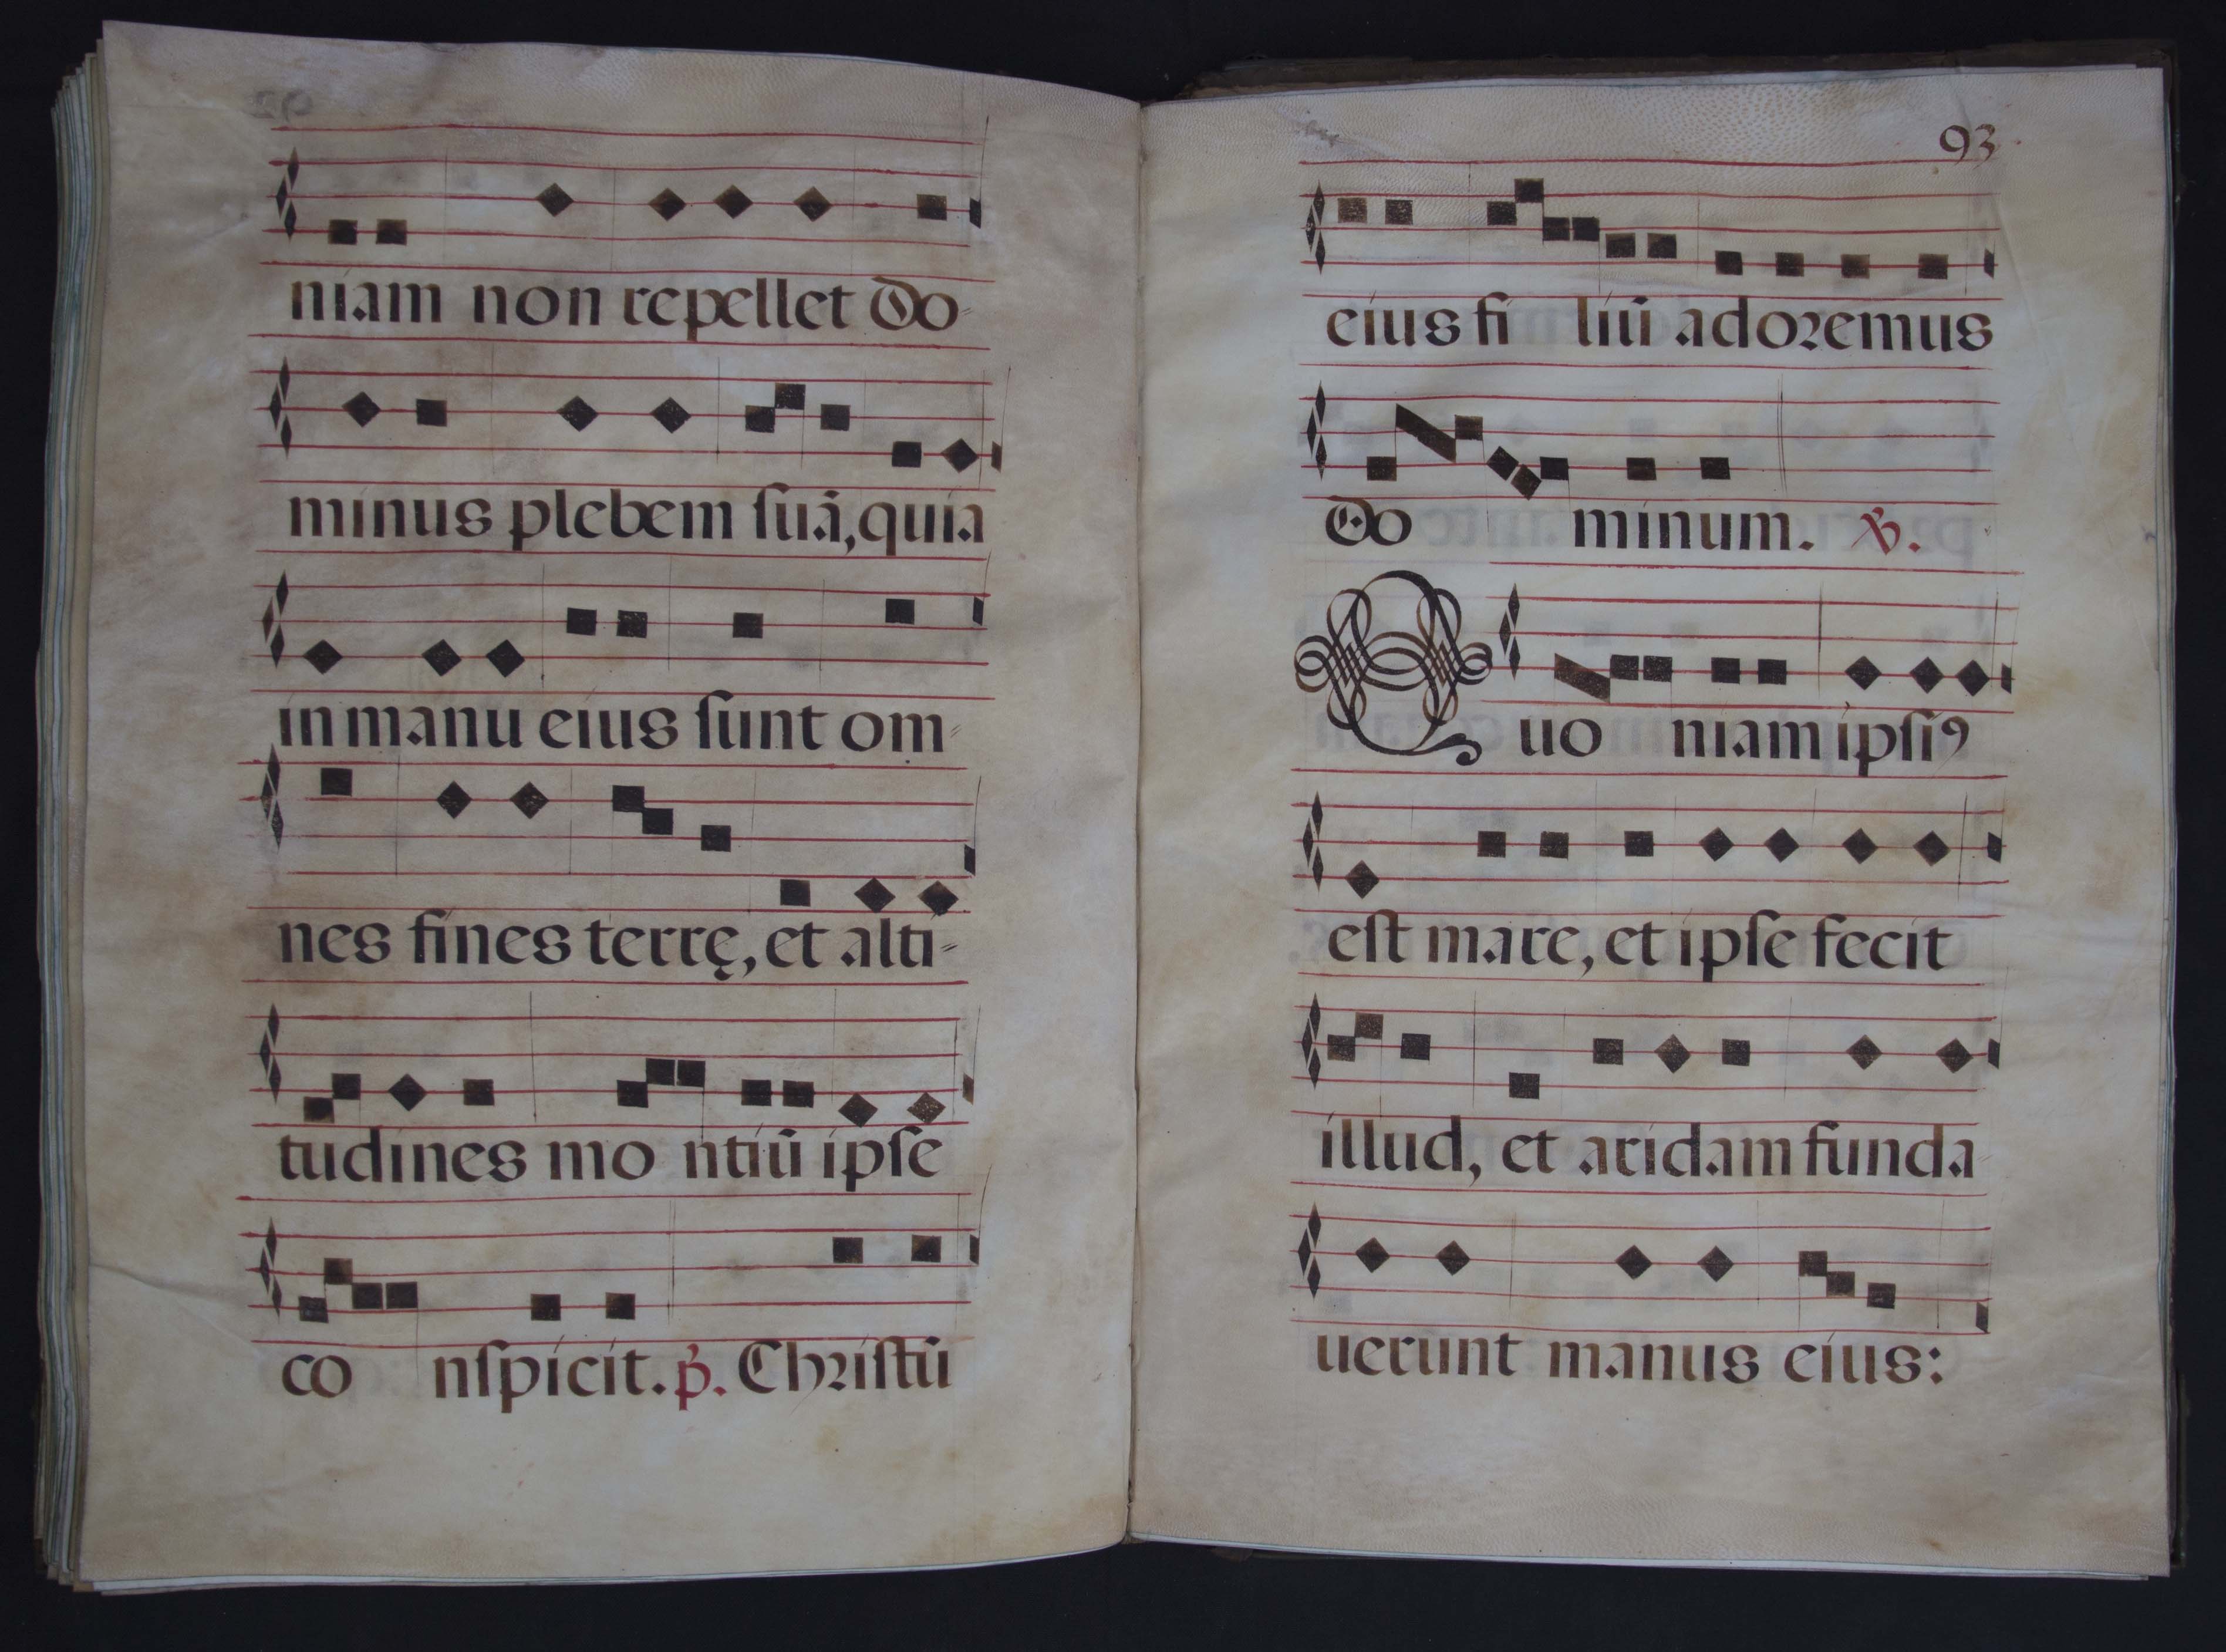 niam non repellet Do-
minus plebem ſuā, quia
in manu eius ſunt om-
nes fines terrę, et alti-
tudines mo ntiū ipſe
co nſpicit. p̃. Chriſtū
93
eius fi liū adoremus
Do minum. ꝟ.
Quo niam ipſiꝰ
eſt mare, et ipſe fecit
illud, et aridam funda-
uerunt manus eius: